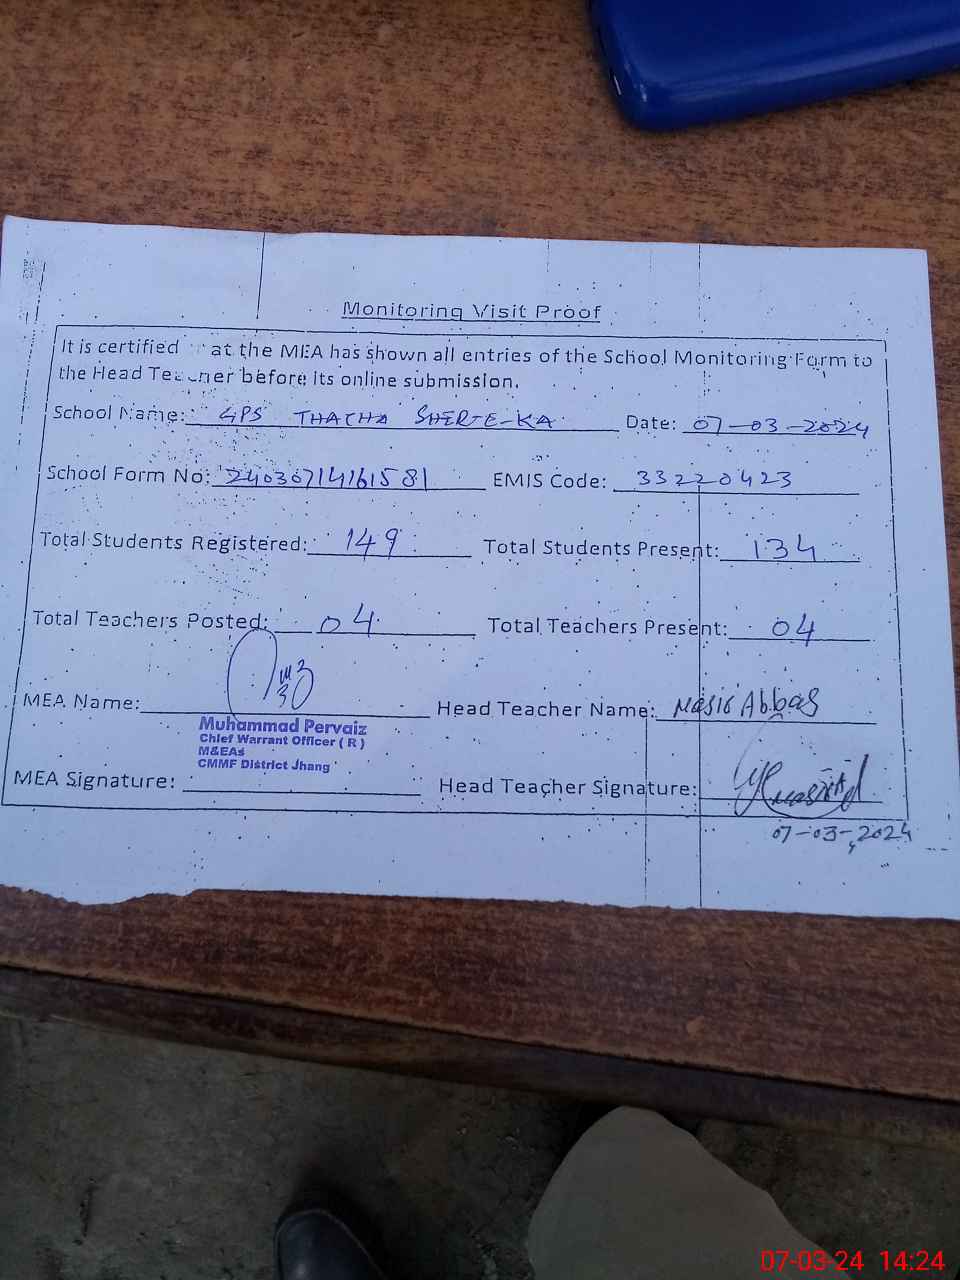 Monitoring Visit Proof
It is certified at the MEA has shown all entries of the School Monitoring Form to
the Head Teacher before its online submission.
School Name: GPS THACHA SHERE-KA Date: 07-03-2024
School Form No: 24030714161581 EMIS Code: 33220423
Total Students Registered: 149 Total Students Present: 134
Total Teachers Posted: 04 Total Teachers Present: 04
MEA Name: Head Teacher Name: Nasir Abbas
Muhammad Pervaiz
Chief Warrant Officer ( R )
M&EAs
CMMF District Jhang
MEA Signature: Head Teacher Signature:
07-03-2024
07-03-24 14:24